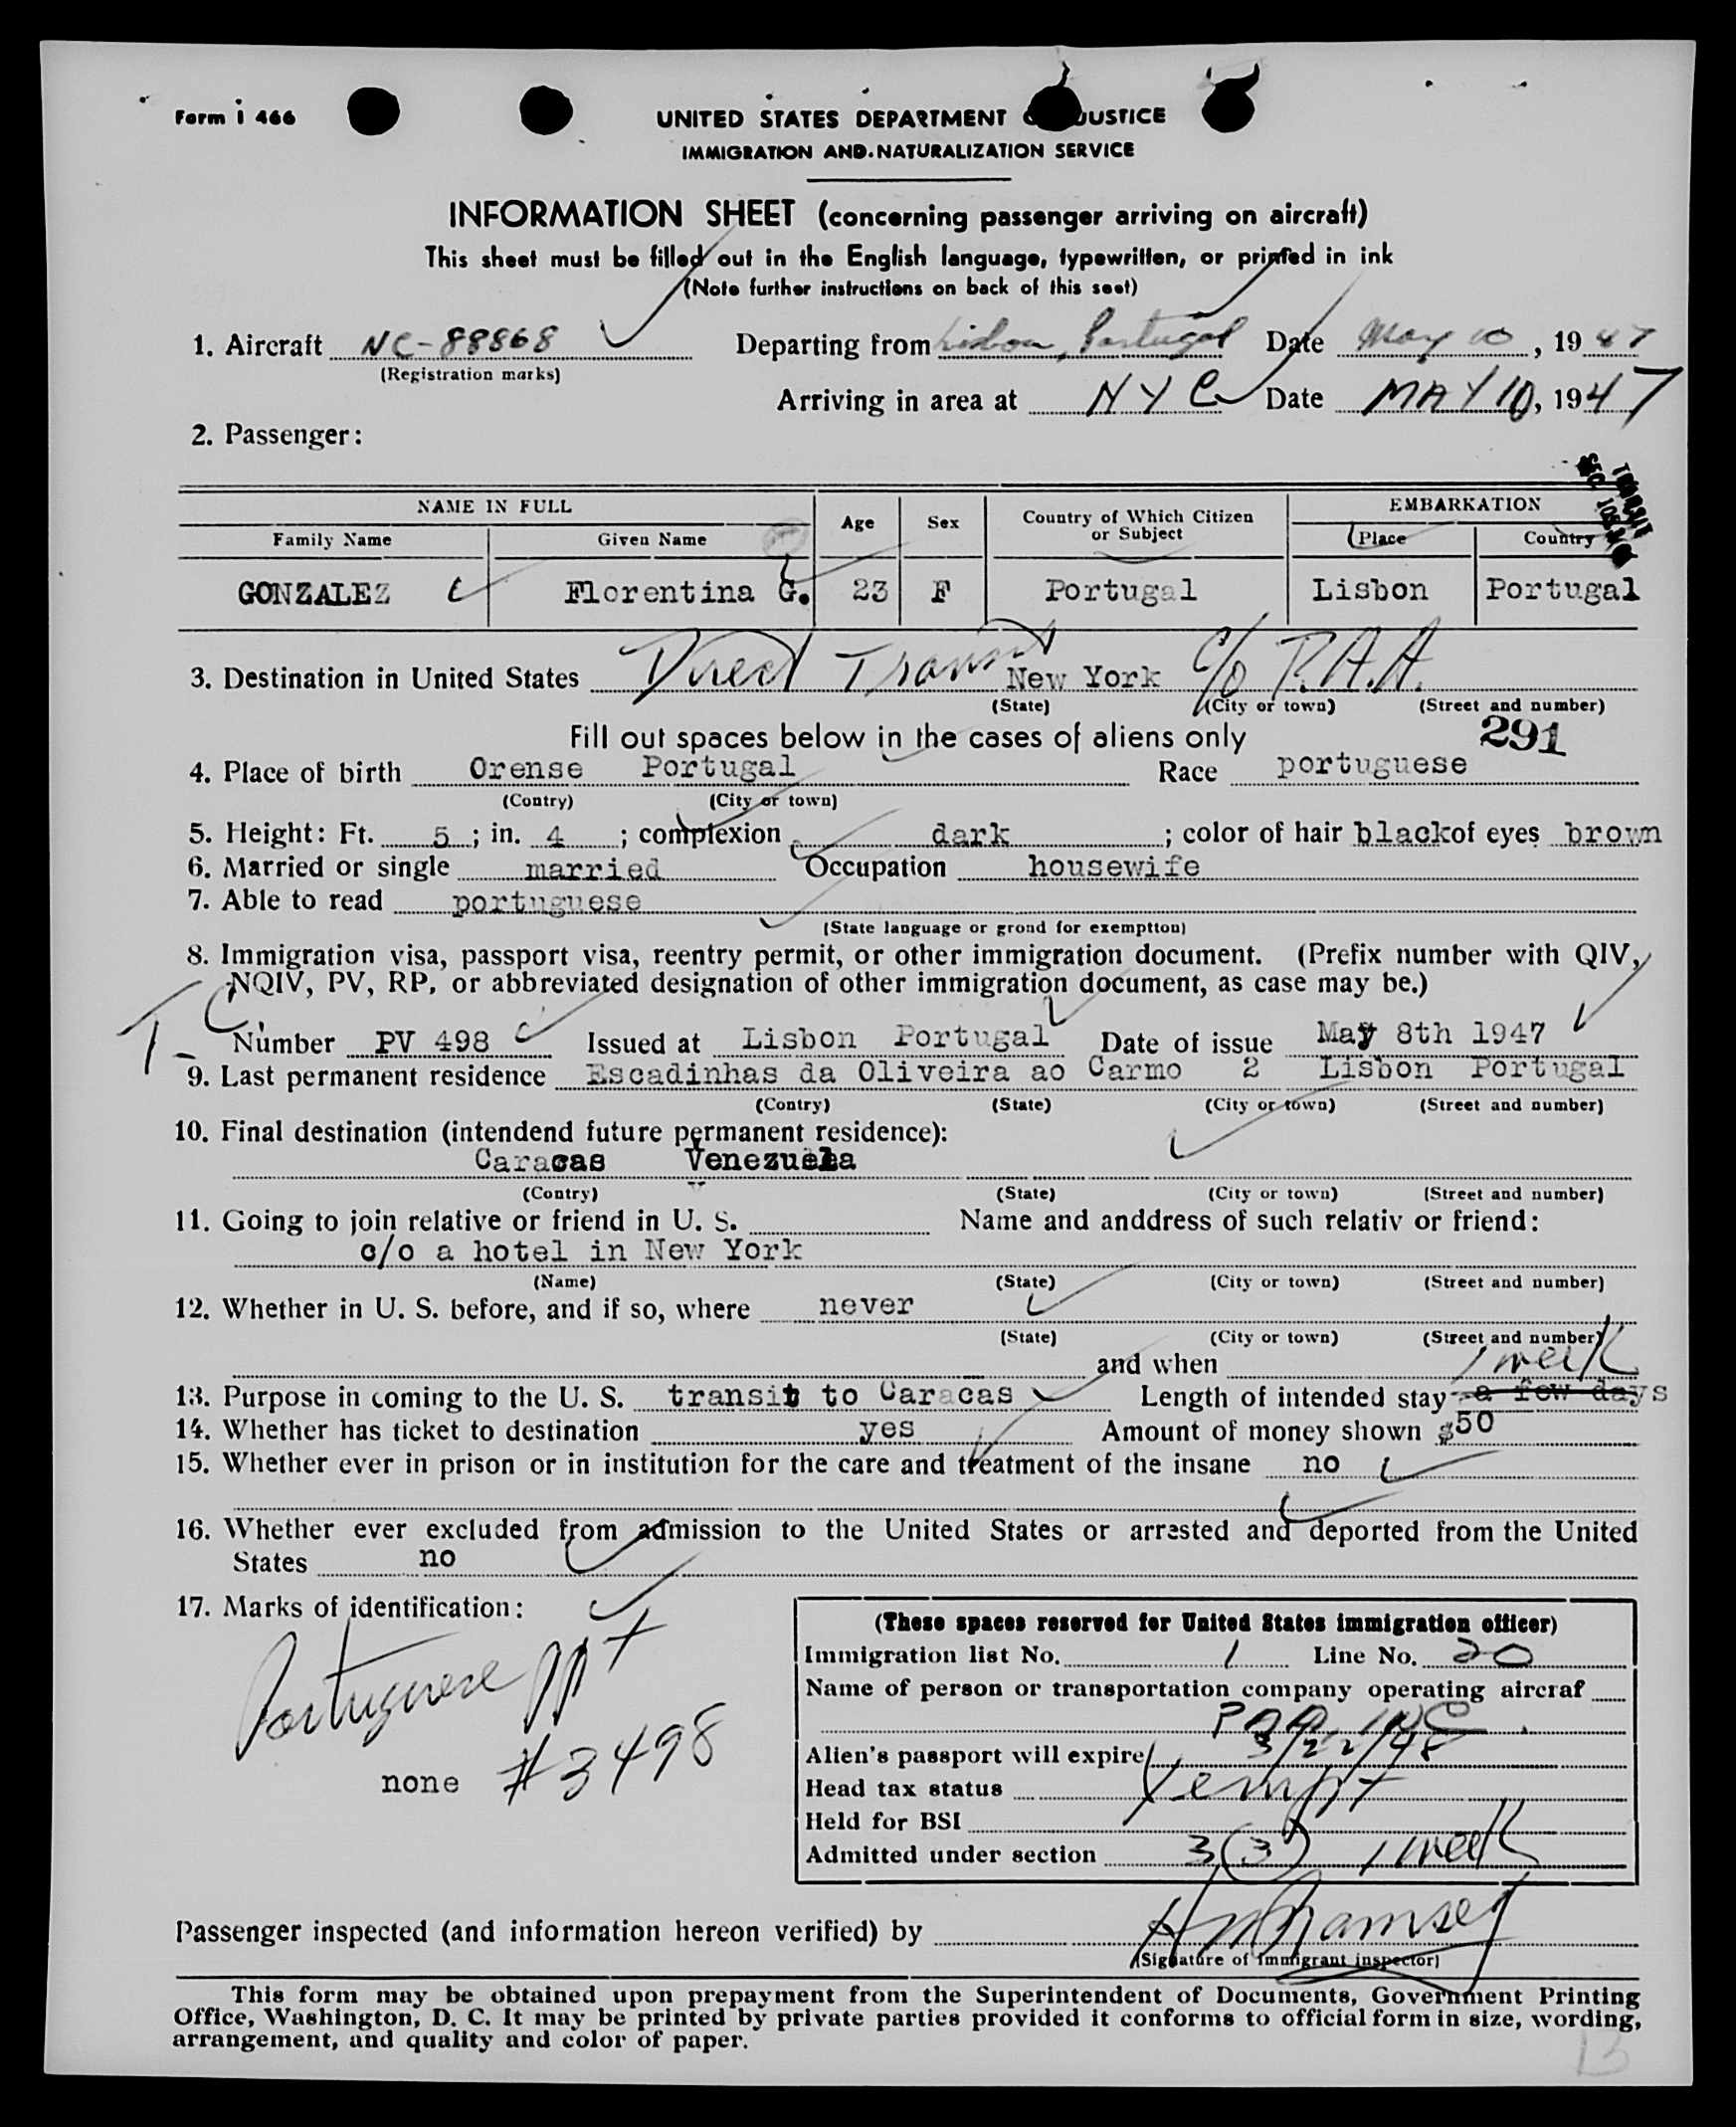 Form i 466
UNITED STATES DEPARTMENT JUSTICE
IMMIGRATION AND NATURALIZATION SERVICE
INFORMATION SHEET (concerning passenger arriving on aircraft)
This sheet must be filled out in the English language, typewritten, or printed in ink
(Note further instructions on back of this seet)
1. Aircraft NC-88868 Departing from Lisbon, Portugal Date May 10, 1947
(Registration marks)
Arriving in area at NYC Date MAY 10, 1947
2. Passenger:
TRANSIT
SEC.
NAME IN FULL Age Sex Country of Which Citizen or Subject EMBARKATION
Family Name Given Name Place Country
GONZALEZ Florentina G. 23 F Portugal Lisbon Portugal
3. Destination in United States Direct Transit New York c/o P.A.A.
(State) (City or town) (Street and number)
Fill out spaces below in the cases of aliens only 291
4. Place of birth Orense Portugal Race portuguese
(Contry) (City or town)
5. Height: Ft. 5; in. 4; complexion dark; color of hair black of eyes brown
6. Married or single married Occupation housewife
7. Able to read portuguese
(State language or grond for exemptton)
8. Immigration visa, passport visa, reentry permit, or other immigration document. (Prefix number with QIV,
NQIV, PV, RP, or abbreviated designation of other immigration document, as case may be.)
Number PV 498 Issued at Lisbon Portugal Date of issue May 8th 1947
9. Last permanent residence Escadinhas da Oliveira ao Carmo 2 Lisbon Portugal
(Contry) (State) (City or town) (Street and number)
10. Final destination (intendend future permanent residence):
Caracas Venezuela
(Contry) (State) (City or town) (Street and number)
11. Going to join relative or friend in U. S. Name and anddress of such relativ or friend:
c/o a hotel in New York
(Name) (State) (City or town) (Street and number)
12. Whether in U. S. before, and if so, where never
(State) (City or town) (Street and number)
and when 1 week
13. Purpose in coming to the U. S. transit to Caracas Length of intended stay a few days
14. Whether has ticket to destination yes Amount of money shown $50
15. Whether ever in prison or in institution for the care and treatment of the insane no
16. Whether ever excluded from admission to the United States or arrested and deported from the United
States no
17. Marks of identification:
Portuguese ppt
none #3498
(These spaces reserved for United States immigration officer)
Immigration list No. 1 Line No. 20
Name of person or transportation company operating aircraf
PAA, INC.
Alien's passport will expire 3/22/48
Head tax status Xempt
Held for BSI
Admitted under section 3(3) 1 week
Passenger inspected (and information hereon verified) by Ramsey
(Signature of immigrant inspector)
This form may be obtained upon prepayment from the Superintendent of Documents, Government Printing
Office, Washington, D. C. It may be printed by private parties provided it conforms to official form in size, wording,
arrangement, and quality and color of paper.
13